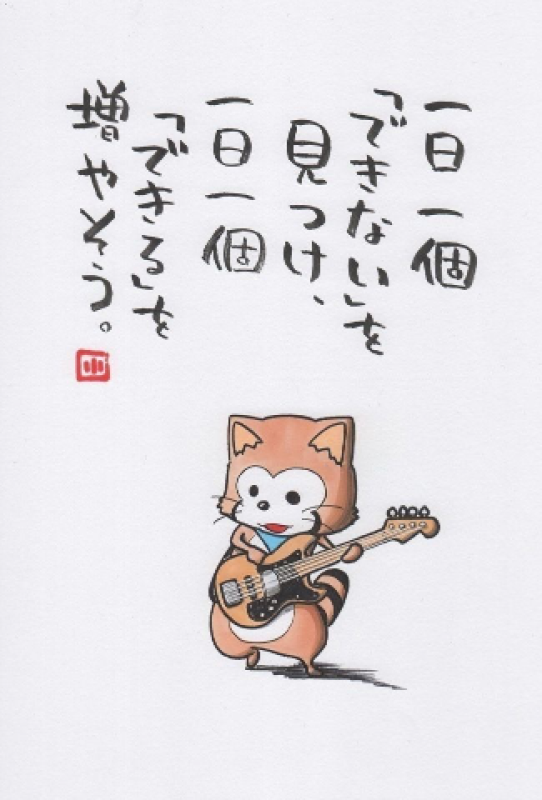 一日一個
「できない」を
見つけ、
一日一個
「できる」を
増やそう。